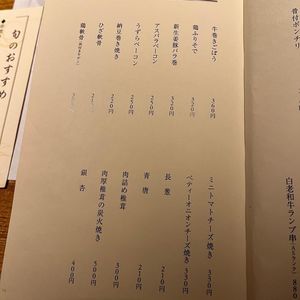 骨付ポンチリ
白老和牛ランプ串
牛巻きごぼう 360円
鶏ふりそで 320円
新生姜豚バラ巻 320円
アスパラベーコン 250円
うずらベーコン 250円
納豆巻き焼き 220円
ひざ軟骨
鶏軟骨
ミニトマトチーズ焼き 330円
ペティーオニオンチーズ焼き 330円
長葱 210円
青唐 210円
肉詰め椎茸 300円
肉厚椎茸の炭火焼き 500円
銀杏 400円
旬のおすすめ